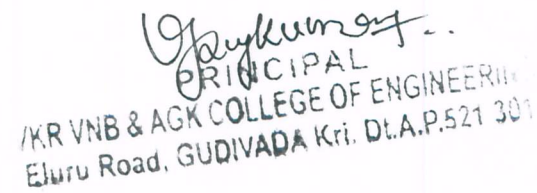 PRINCIPAL
/KR VNB & AGK COLLEGE OF ENGINEERIN
Eluru Road, GUDIVADA Kri. Dt.A.P.521 301